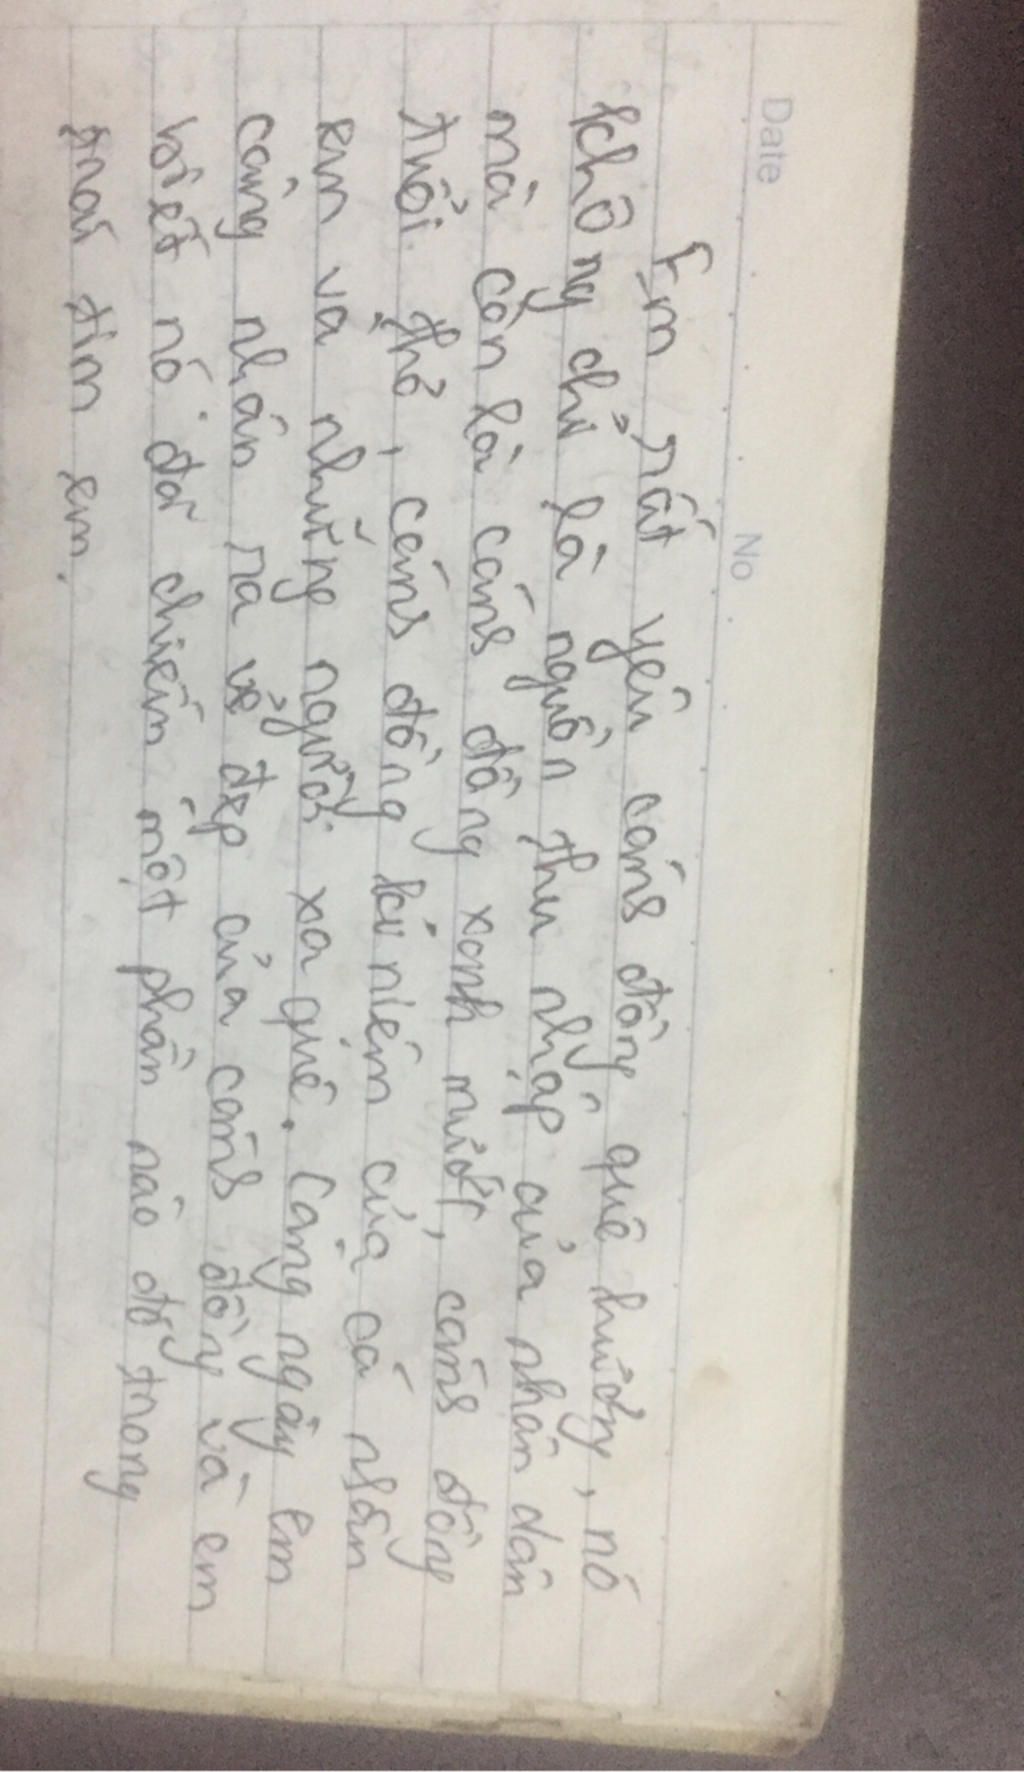 Date No
Em rất yêu cánh đồng quê hương, nó
không chỉ là nguồn thu nhập của nhân dân
mà còn là cánh đồng xanh mướt, cánh đồng
tuổi thơ, cánh đồng kỉ niệm của cá nhân
em và những người xa quê. Càng ngày em
càng nhận ra vẻ đẹp của cánh đồng và em
biết nó đã chiếm một phần nào đó trong
trái tim em.